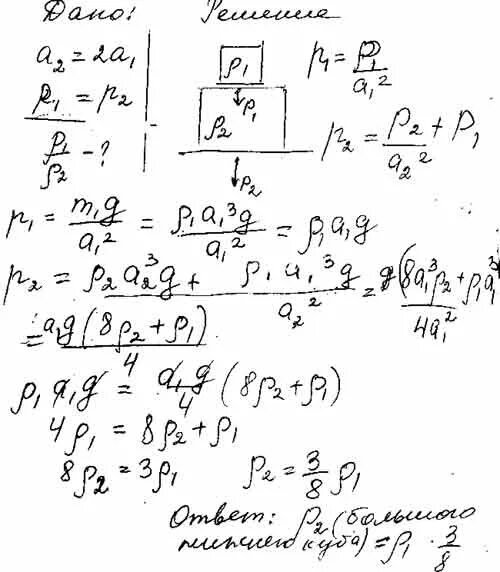 Дано: Решение
a₂ = 2a₁
p₁ = p₂
ρ₁/ρ₂ - ?
ρ₁
↓P₁
ρ₂
↓P₂
p₁ = P₁/a₁²
p₂ = (P₂ + P₁)/a₂²
p₁ = m₁g/a₁² = ρ₁a₁³g/a₁² = ρ₁a₁g
p₂ = (ρ₂a₂³g + ρ₁a₁³g)/a₂² = g(8a₁³ρ₂ + ρ₁a₁³)/4a₁²
= a₁g(8ρ₂ + ρ₁)/4
ρ₁a₁g = a₁g/4 (8ρ₂ + ρ₁)
4ρ₁ = 8ρ₂ + ρ₁
8ρ₂ = 3ρ₁ ρ₂ = 3/8 ρ₁
Ответ: ρ₂ (большого
нижнего куба) = ρ₁ · 3/8